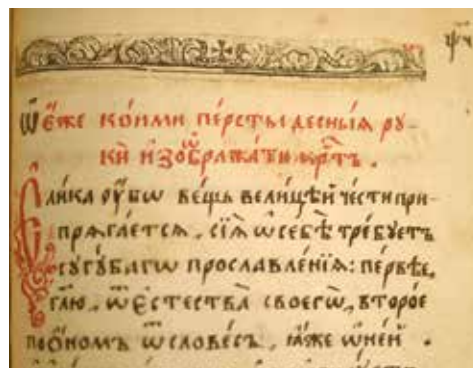 Ѿ е́же ко́ими пе́рсты десны́ѧ рꙋ-
кѝ и҆з̾ѡбража́ти крⷭ҇тъ.
Е҆ли́ка ᲂу҆́бѡ ве́щь вели́цѣй че́сти при-
прѧга́етсѧ, сїѧ̀ ѡ҆ себѣ̀ тре́бꙋетъ
сꙋгꙋ́багѡ прославле́нїѧ: пе́рвѣе,
гл҃ю, ѿ є҆стества̀ своегѡ̀, второ́е
по Ѻ҆номъ ѿ слове́съ, ꙗ҆́же ѡ҆ не́й